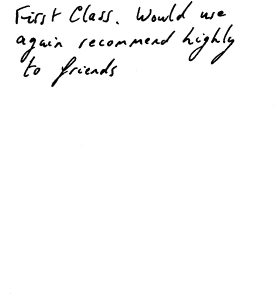 First Class. Would use
again recommend highly
to friends